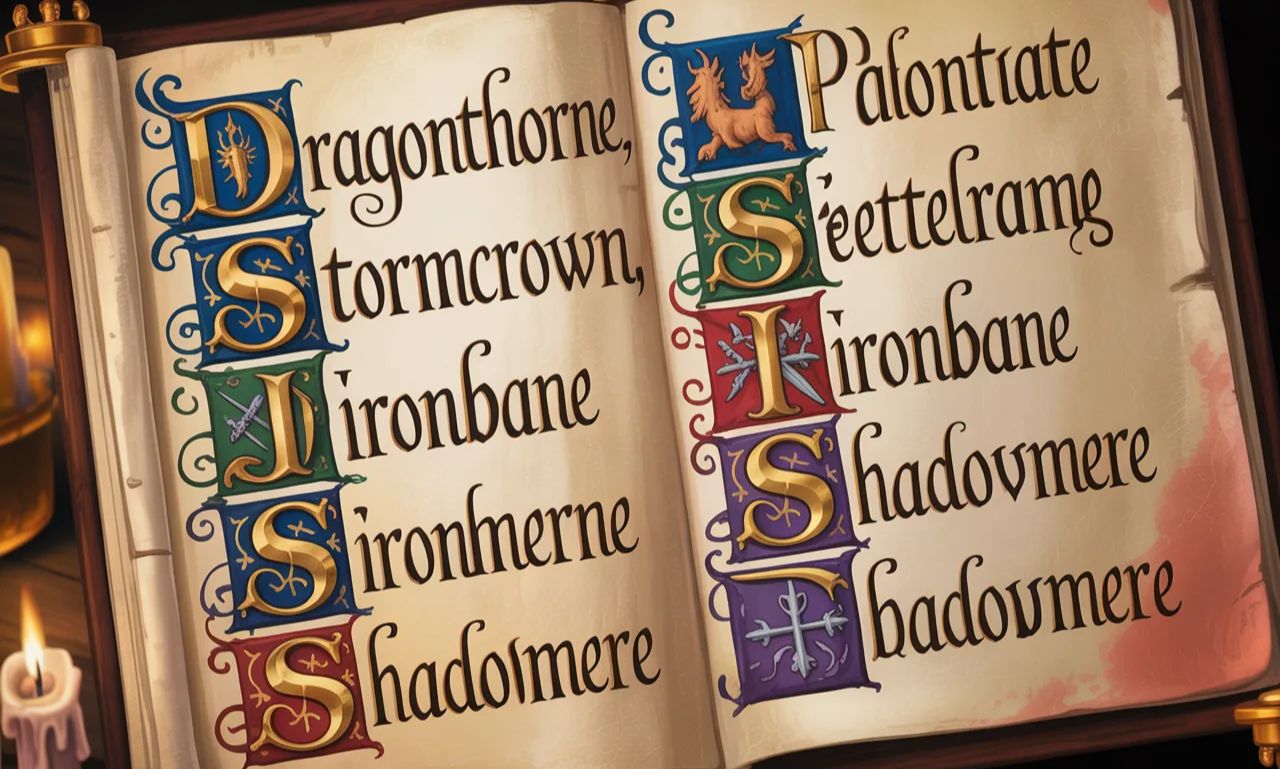 Dragonthorne,
Stormcrown,
Jironbane
Sironhnerne
Shadoımere
Pafontrate
Seettelramg
Iironbane
Shadovmere
badovmere